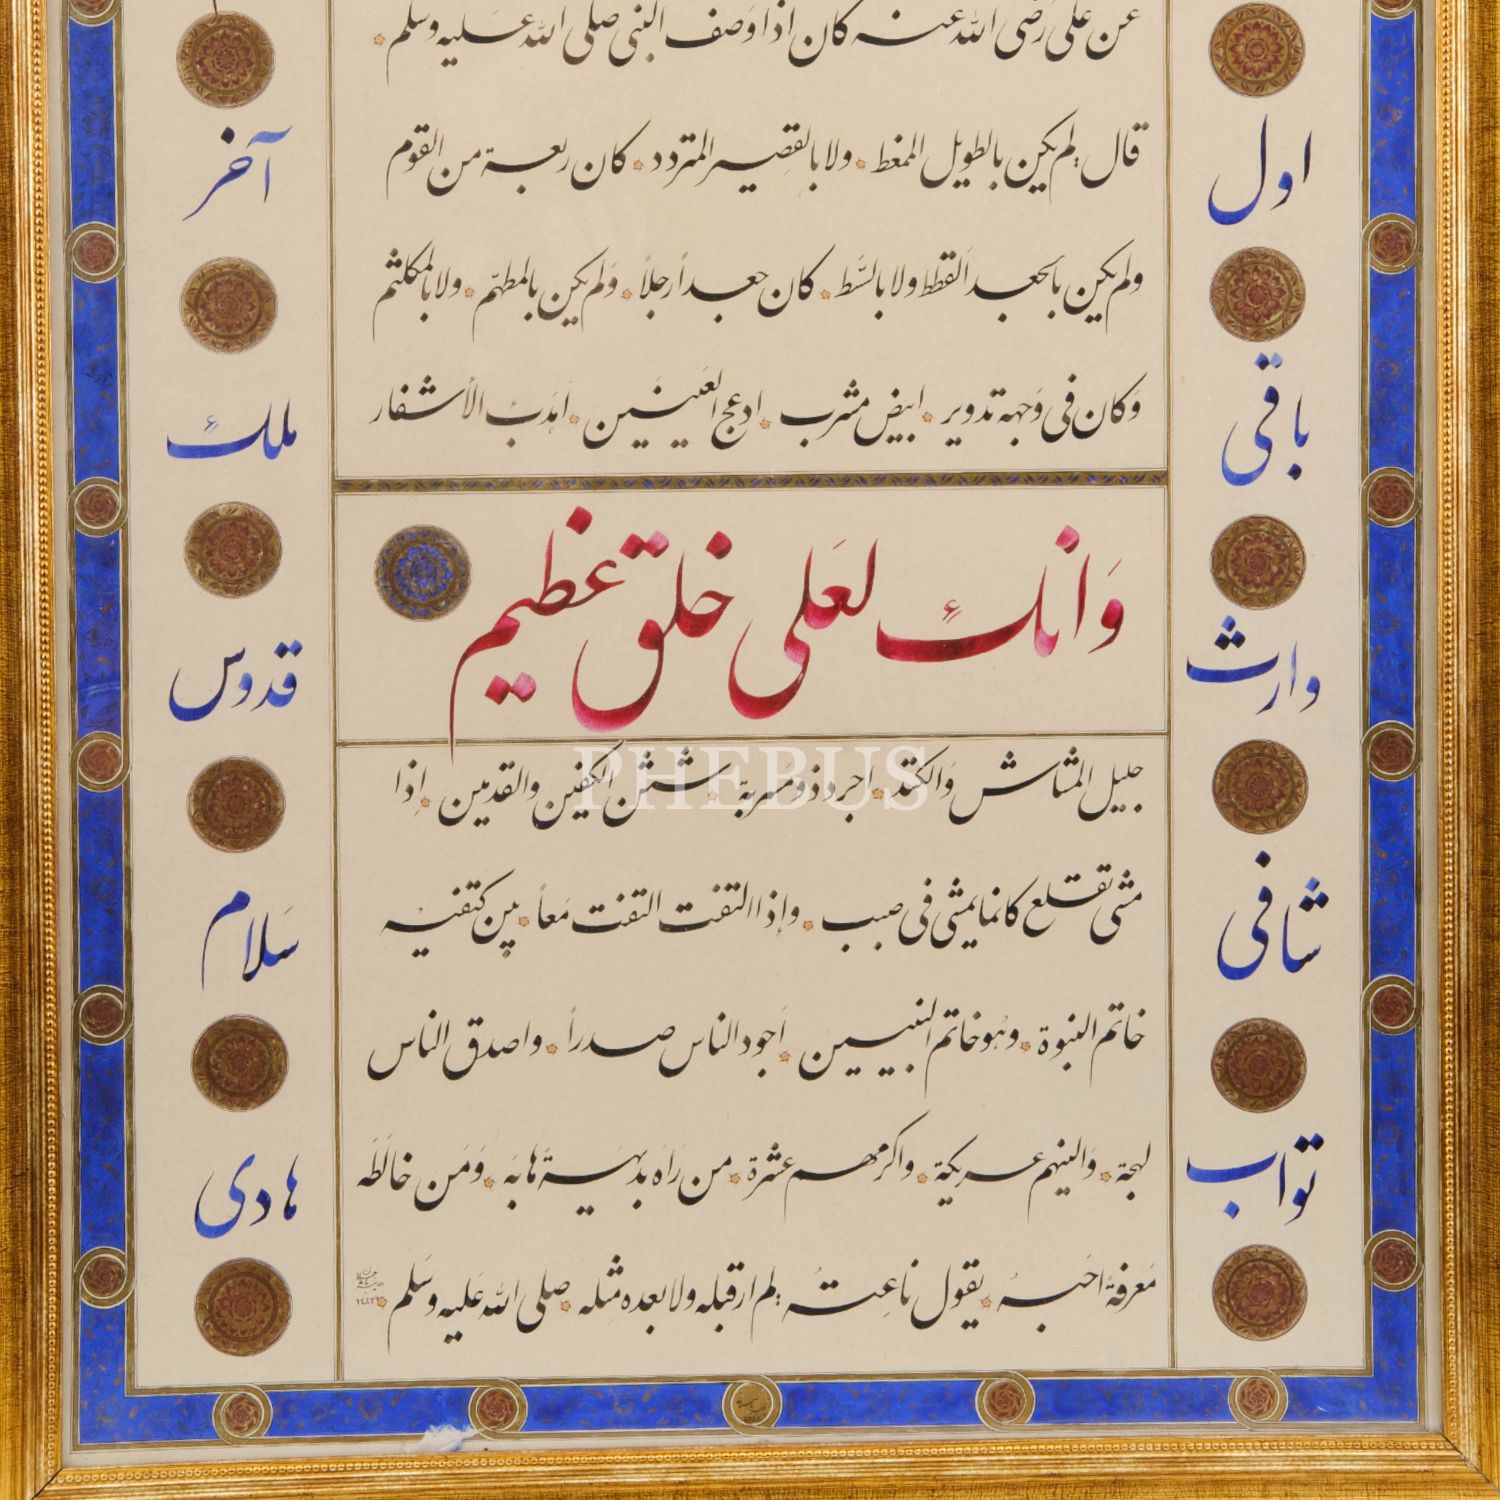 عن علی رضی الله عنه کان اذا وصف النبی صلی الله علیه وسلم
قال لم یکن بالطویل الممغط ولا بالقصیر المتردد کان ربعة من القوم
ولم یکن بالجعد القطط ولا بالسبط کان جعداً رجلاً وَلم یکن بالمطهّم ولا بالمکلثم
وَکان فی وَجهه تدویر ابیض مشرب ادعج العینَین اَهدَب الأشفار
وَانك لَعَلی خلق عظیم
جلیل المشاش وَالکتد اجرد ذو مسربة شثن الکفین والقدمین إذا
مشی تقلع کانما یمشی فی صبب وإذا التفت التفت مَعاً بین کتفیه
خاتم النبوة وهُو خاتم النبیین اَجود الناس صدراً واصدق الناس
لهجة وَالینهم عریکة واکرمهم عشرة من رَاٰه بدیهَةً هَابَه وَمَن خالَطَه
مَعرفةً احَبهُ یقول ناعِتهُ لم ار قبله ولا بعده مثله صلی الله عَلیه وسَلم
١٤٤٢
اول
باقی
وارث
شافی
تواب
آخر
ملك
قدوس
سَلام
هادی
PHEBUS